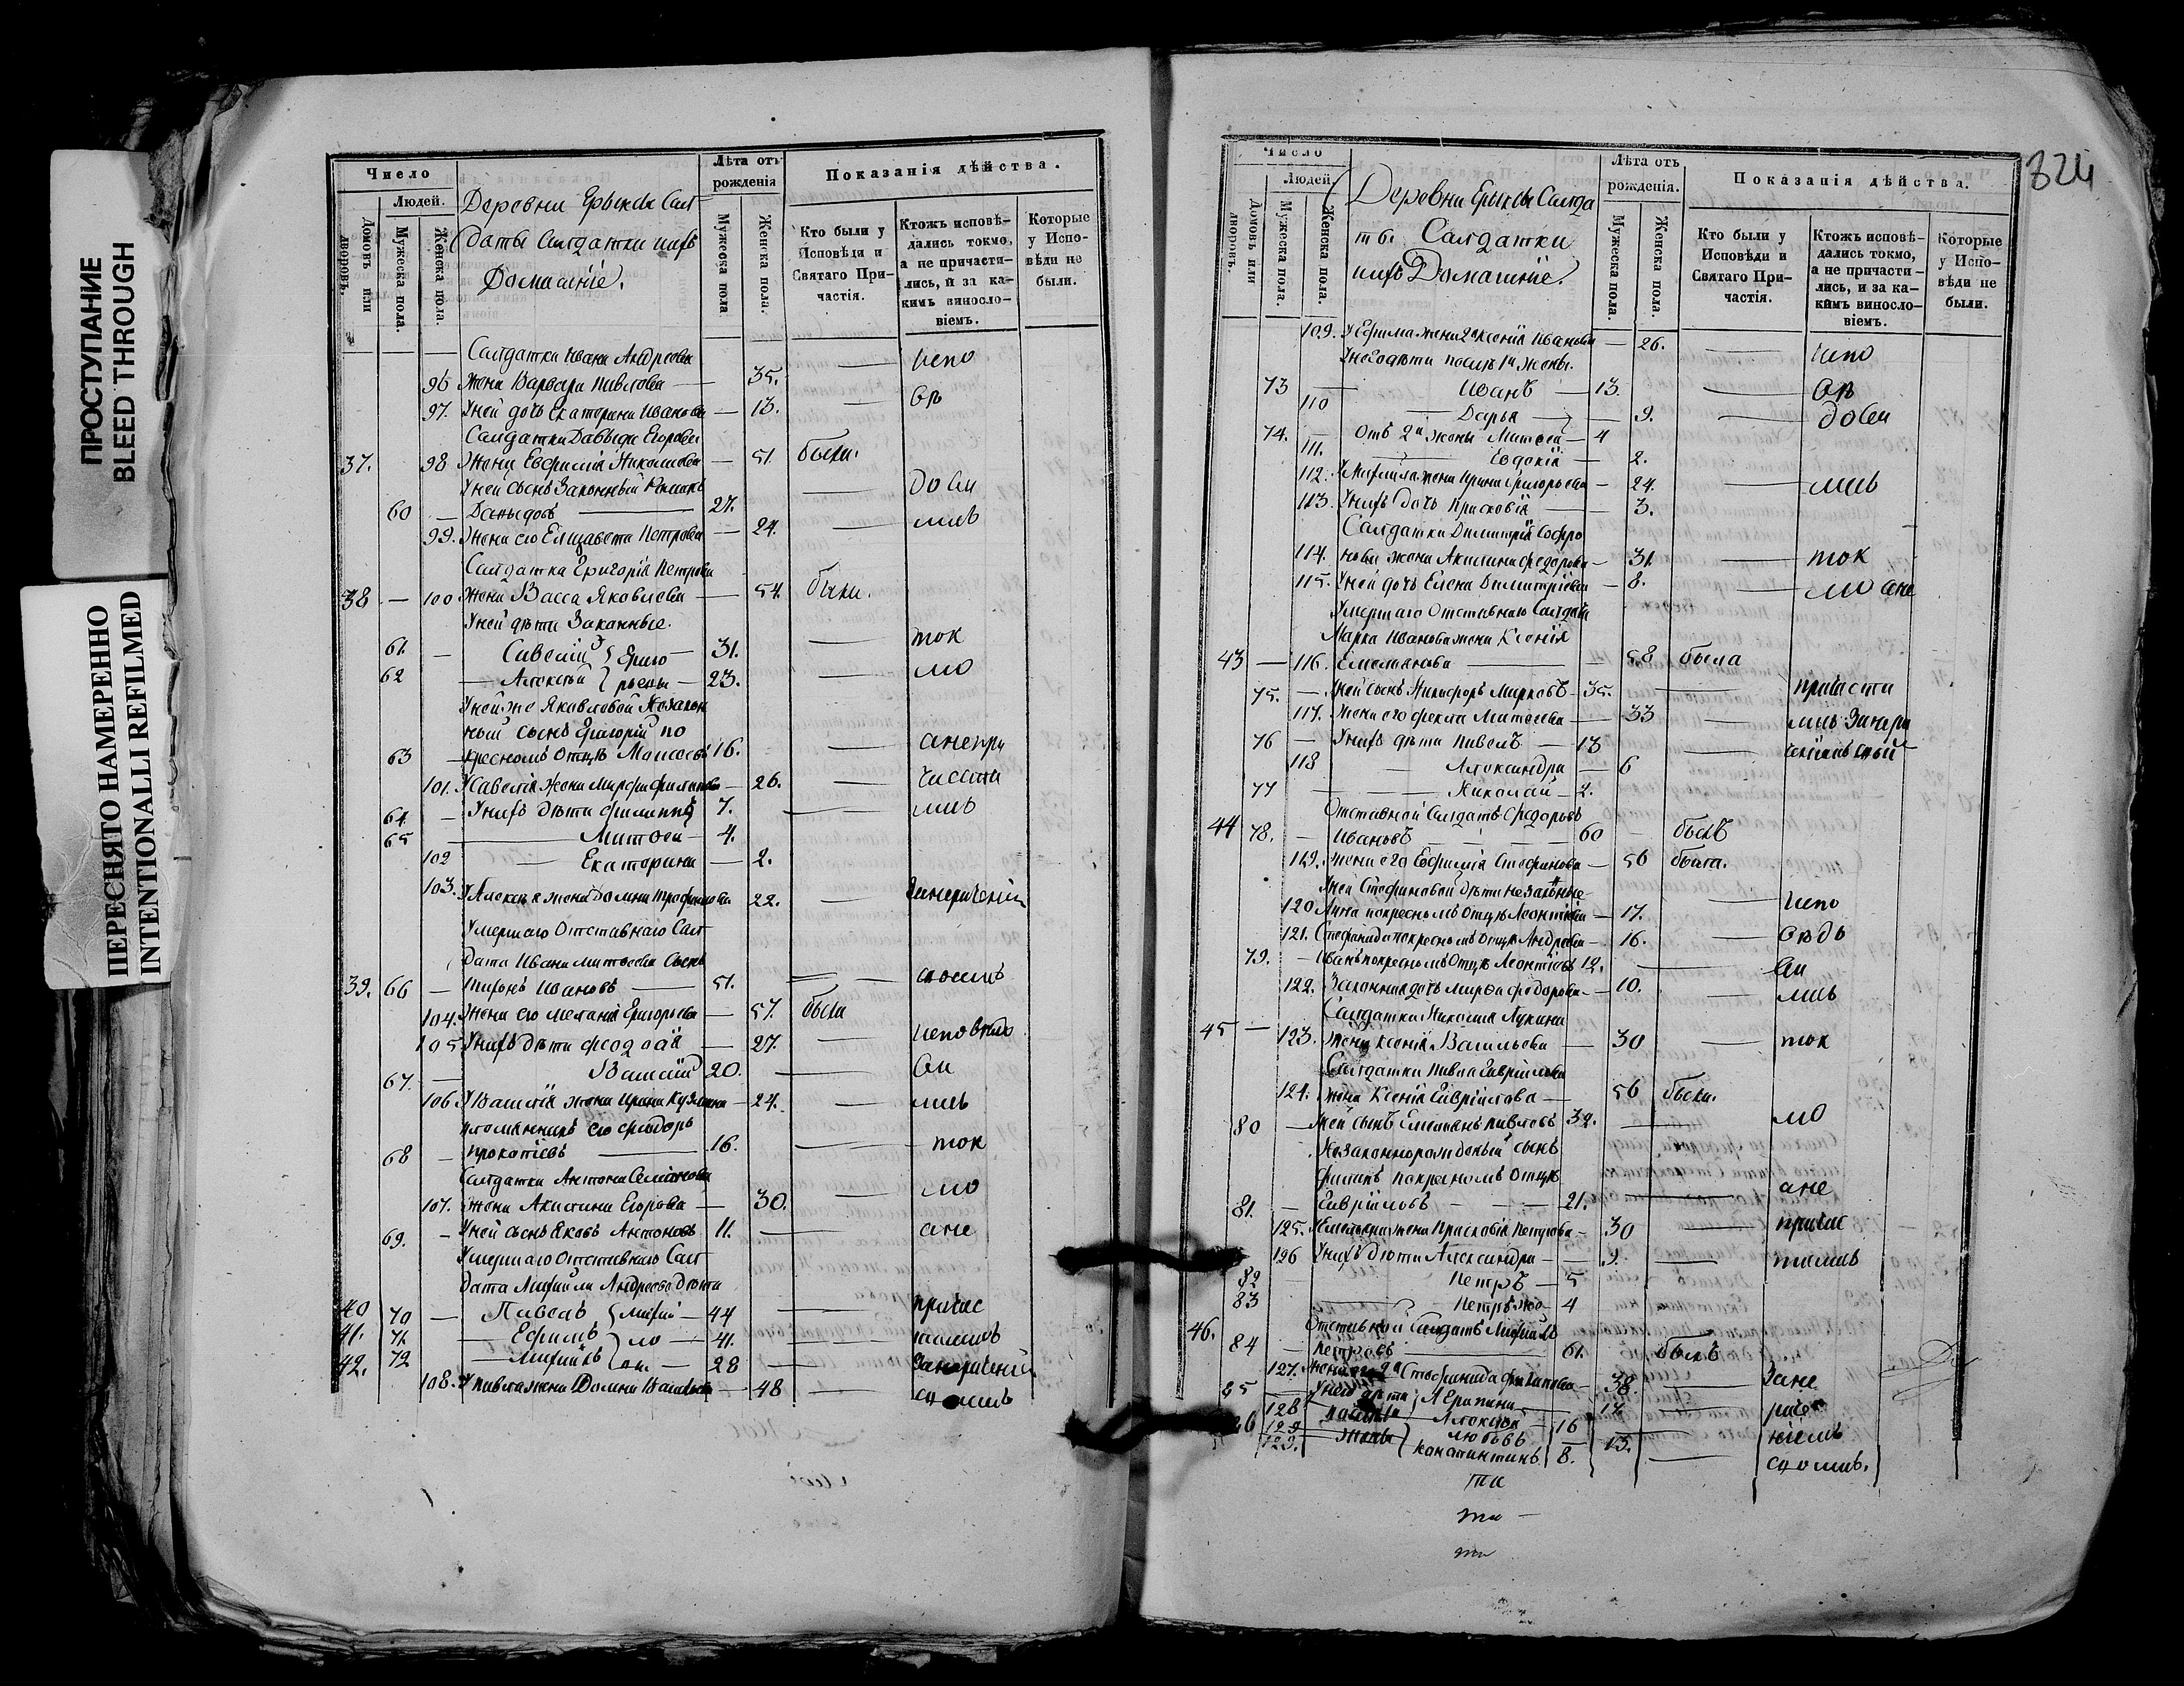 ПРОСТУПАНИЕ
BLEED THROUGH
ПЕРЕСНЯТО НАМЕРЕННО
INTENTIONALLI REFILMED
Число
Людей.
Домовъ или дворовъ.
Мужеска пола.
Женска пола.
Деревни Ерыклы Сал
даты Салдатки и ихъ
Домашніе.
Лѣта отъ рожденія
Мужеска пола
Женска пола.
Показанія дѣйства.
Кто были у Исповѣди и Святаго Причастія.
Ктожъ исповѣдались токмо, а не причастились, и за какимъ винословіемъ.
Которые у Исповѣди не были.
Салдатки Ивана Андреева испо
96 жена Варвара Павлова — 35.
97. У ней дочь Екатерина Иванова — 13. — вѣ
Салдатки Давыда Егорова
37. 98 Жена Евфимія Николаева — 51. были.
У ней сынъ Законный — дова
60 — Давыдовъ — 27.
99. Жена его Елизавета Петрова — 24. — лись
Салдатка Григорія Петрова
38 — 100 Жена Васса Яковлева — 54. были.
У ней дѣти Законные.
61. — Савелій Григо — 31. — ток
62 — Алексѣй рьевы — 23. — мо
У ней же Яковлевой Незакон
ный сынъ Григорій по
63 — крестномъ Отцѣ Моисеевъ 16. — а не при
101. У Савелія Жена Марфа Филипова — 26. — части
64. — У нихъ дѣти Филиппъ 7. — лись
65 — Матвей — 4.
102 — Екатерина — 2.
103. У Алексѣя жена Домна Трофимова 22. —
Умершаго Отставнаго Сал
дата Ивана Матвеева Сынъ
39. 66 — Тихонъ Ивановъ — 51. —
104. Жена его Меланія Григорьева — 57. были
105 У нихъ дѣти — 27. —
67. — Василій 20. — ва
106 У Василія жена Ирина Кузмина — 24. — лись
племянникъ его Ѳедоръ
68 — Прокопіевъ — 16. — ток
Салдатки Антона
107. Жена Акилина Егорова — 30. — мо
69. — У ней сынъ Яковъ Антоновъ 11. — а не
Умершаго Отставнаго Сал
дата Михайла Андреева Дѣти
40 70 — Павелъ Михай — 44 — причас
41. 71. — Ефимъ ло — 41. — тились
42. 72 — Михайлъ вы. — 28 —
108. У Павла жена Домна Васильева — 48 —
324
Число
Людей.
Домовъ или дворовъ.
Мужеска пола.
Женска пола.
Деревни Ерыклы Салда
ты. Салдатки
и ихъ Домашніе.
Лѣта отъ рожденія.
Мужеска пола.
Женска пола.
Показанія дѣйства.
Кто были у Исповѣди и Святаго Причастія.
Ктожъ исповѣдались токмо, а не причастились, и за какимъ винословіемъ.
Которые у Исповѣди не были.
109. У Ефима жена 2я Ксенія Иванова — 26. — испо
У него дѣти послѣ 1й жены.
73 — Иванъ — 13. — вѣ
110 — Дарья — 9. — дова
74. — Отъ 2й жены Матвей — 4
111. Евдокія — 2.
112. У Михаила жена Ирина Григорьева — 24. — лись
113. У нихъ дочь Прасковія — 3.
Салдатки Димитрія Софро
114. нова жена Акилина Федорова — 31. — ток
115. У ней дочь Елена Димитріева — 8. — мо а не
Умершаго Отставнаго Салдата
Марка Иванова жена Ксенія
43 — 116. Емельянова — 58 была
75. — У ней сынъ Никифоръ Марковъ 35. — причасти
117. Жена его Фекла Матвеева — 33 —
76 — У нихъ дѣти Павелъ — 13 —
118 — Александра — 6
77 — Николай — 2.
Отставной Салдатъ Федоръ
44 78. — Ивановъ — 60 — былъ
119. Жена его Евфимія Стефанова — 56 была.
У ней Стефановой дѣти незаконные
120 Анна по крестномъ Отцѣ Леонтіева — 17. — испо
121. Стефанида по крестномъ Отцѣ Андреева — 16. — вѣдо
79. — Иванъ по крестномъ Отцѣ Леонтіевъ 12. — ва
122. Законная дочь Марфа Федорова — 10. — лись
Салдатки Николая Лукина
45 — 123. Жена Ксенія Васильева — 30 — ток
Салдатки Павла Гаврилова
124. Жена Ксенія Гаврилова — 56 была.
80 — У ней сынъ Емельянъ Павловъ 32. — мо
Незаконнорожденный сынъ
Филипъ по крестномъ Отцѣ
81. — Гавриловъ — 21. — а не
125. У Емельяна жена Прасковія Петрова — 30 — причас
126 У нихъ дѣти Александра — 9. — тились
82 — Петръ — 5
83 — Петръ же — 4
46. Отставной Салдатъ Михайлъ
84 — Петровъ — 61. былъ
127. Жена его 2я Стефанида Филипова — 38. —
85 — У него дѣти
128 — 17.
86 129 Алексѣй — 16
129. жены Любовь — 13.
Константинъ 8.
ти
ти —
ти